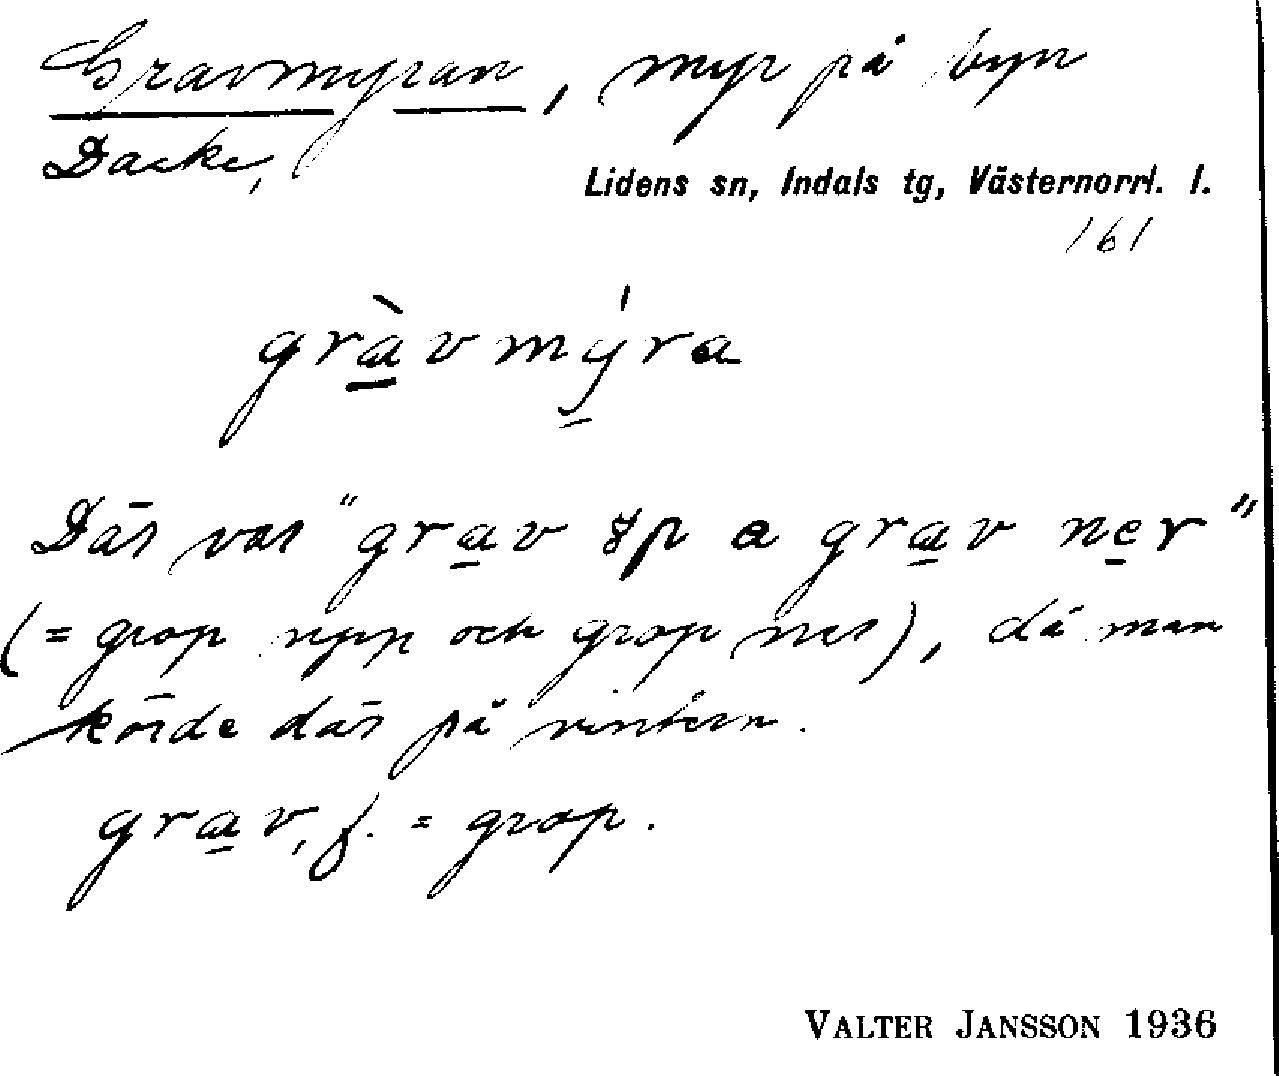 Gravmyran, myr på byn
Dacke,
Lidens sn, Indals tg, Västernorrl. l.
161
grà̲vmý̲ra
Där var "gra̲v a gra̲v ne̲r"
(= grop upp och grop ner), då man
körde där på vintern.
gra̲v, f. = grop.
VALTER JANSSON 1936